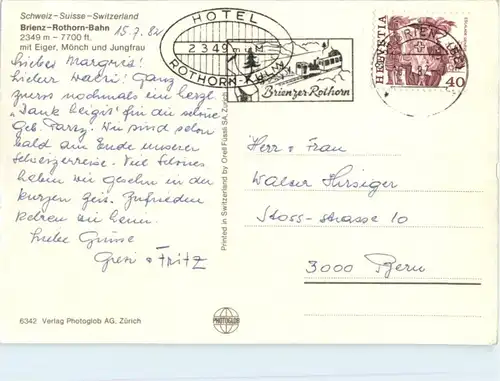 Schweiz - Suisse - Switzerland
Brienz-Rothorn-Bahn
2349 m – 7700 ft.
mit Eiger, Mönch und Jungfrau
15.7.82
Liebes Margrit!
Lieber Walti! Ganz
zuerst nochmals ein herzl.
"Dank heigit" für die schöne
geb. Party. Wir sind schon
bald am Ende unserer
Schweizerreise. Viel Schönes
haben wir gesehn in der
kurzen Zeit. Zufrieden
kehren wir heim.
Liebe Grüsse
Greti + Fritz
6342 Verlag Photoglob AG, Zürich
Printed in Switzerland by Orell Füssli SA, Zürich
PHOTOGLOB
HOTEL
2349 m ü M
ROTHORN-KULM
Brienzer Rothorn
HELVETIA
40
BRIENZ (BE)
Herr + Frau
Walter Hirsiger
Stoss-strasse 10
3000 Bern